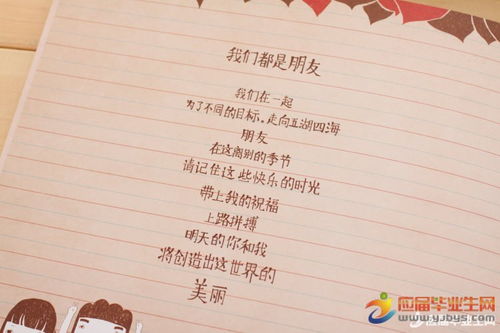 我们都是朋友
我们在一起
为了不同的目标。走向五湖四海
朋友
在这离别的季节
请记住这些快乐的时光
带上我的祝福
上路拼搏
明天的你和我
将创造出这世界的
美丽
应届毕业生网
www.yjbys.com